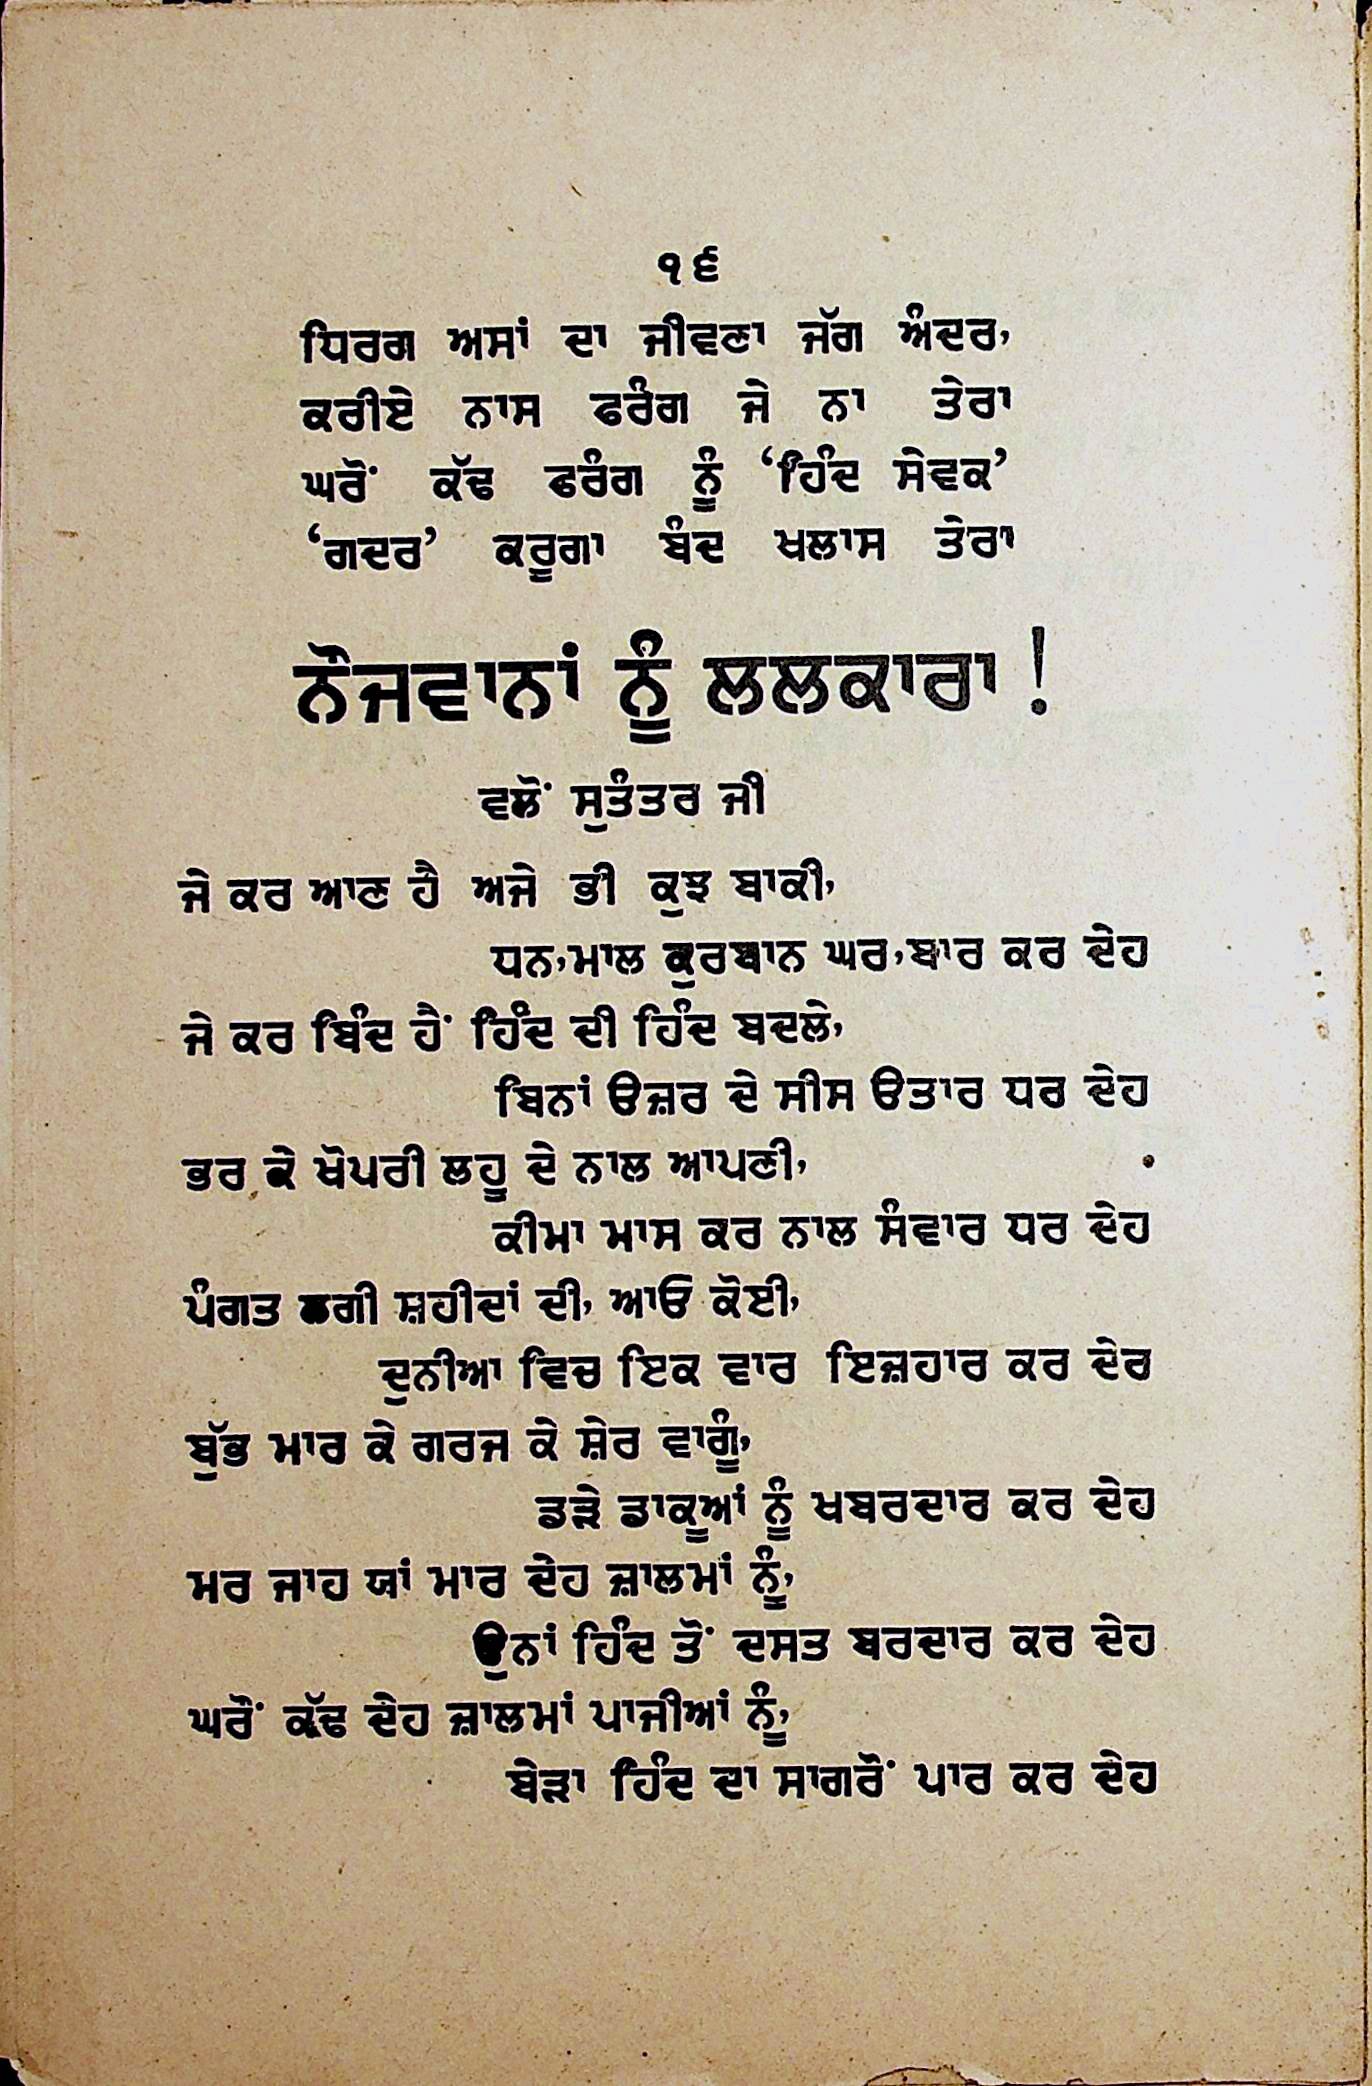 ੧੬
ਧਿਰਗ ਅਸਾਂ ਦਾ ਜੀਵਣਾ ਜੱਗ ਅੰਦਰ,
ਕਰੀਏ ਨਾਸ ਫਰੰਗ ਜੇ ਨਾ ਤੇਰਾ
ਘਰੋਂ ਕੱਢ ਫਰੰਗ ਨੂੰ ‘ਹਿੰਦ ਸੇਵਕ’
‘ਗਦਰ’ ਕਰੂਗਾ ਬੰਦ ਖਲਾਸ ਤੇਰਾ
ਨੌਜਵਾਨਾਂ ਨੂੰ ਲਲਕਾਰਾ !
ਵਲੋਂ ਸੁਤੰਤਰ ਜੀ
ਜੇ ਕਰ ਆਣ ਹੈ ਅਜੇ ਭੀ ਕੁਝ ਬਾਕੀ,
ਧਨ,ਮਾਲ ਕੁਰਬਾਨ ਘਰ,ਬਾਰ ਕਰ ਦੇਹ
ਜੇ ਕਰ ਬਿੰਦ ਹੈਂ ਹਿੰਦ ਦੀ ਹਿੰਦ ਬਦਲੇ,
ਬਿਨਾਂ ੳਜ਼ਰ ਦੇ ਸੀਸ ੳਤਾਰ ਧਰ ਦੇਹ
ਭਰ ਕੇ ਖੋਪਰੀ ਲਹੂ ਦੇ ਨਾਲ ਆਪਣੀ,
ਕੀਮਾ ਮਾਸ ਕਰ ਨਾਲ ਸੰਵਾਰ ਧਰ ਦੇਹ
ਪੰਗਤ ਲਗੀ ਸ਼ਹੀਦਾਂ ਦੀ, ਆਓ ਕੋਈ,
ਦੁਨੀਆ ਵਿਚ ਇਕ ਵਾਰ ਇਜ਼ਹਾਰ ਕਰ ਦੇਰ
ਬੁੱਭ ਮਾਰ ਕੇ ਗਰਜ ਕੇ ਸ਼ੇਰ ਵਾਗੂੰ,
ਡੜੇ ਡਾਕੂਆਂ ਨੂੰ ਖਬਰਦਾਰ ਕਰ ਦੇਹ
ਮਰ ਜਾਹ ਯਾਂ ਮਾਰ ਦੇਹ ਜ਼ਾਲਮਾਂ ਨੂੰ,
ਉਨਾਂ ਹਿੰਦ ਤੋਂ ਦਸਤ ਬਰਦਾਰ ਕਰ ਦੇਹ
ਘਰੋਂ ਕੱਢ ਦੇਹ ਜ਼ਾਲਮਾਂ ਪਾਜੀਆਂ ਨੂੰ,
ਬੇੜਾ ਹਿੰਦ ਦਾ ਸਾਗਰੋਂ ਪਾਰ ਕਰ ਦੇਹ